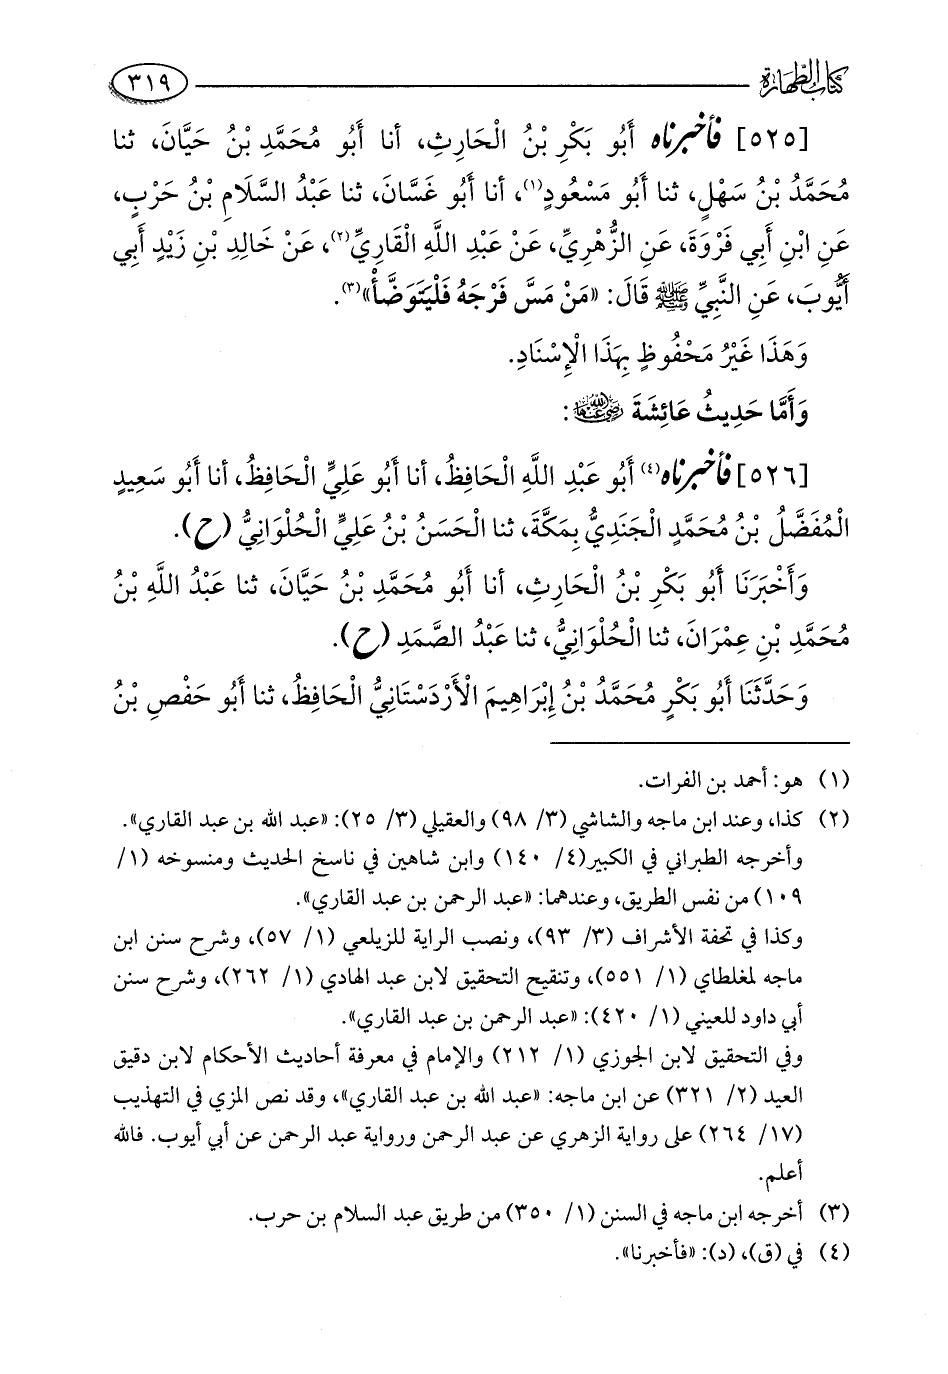 كتاب الطهارة ٣١٩
[٥٢٥] فأخبرناه أَبُو بَكْرِ بْنُ الْحَارِثِ، أنا أَبُو مُحَمَّدِ بْنُ حَيَّانَ، ثنا
مُحَمَّدُ بْنُ سَهْلٍ، ثنا أَبُو مَسْعُودٍ(١)، أنا أَبُو غَسَّانَ، ثنا عَبْدُ السَّلَامِ بْنُ حَرْبٍ،
عَنِ ابْنِ أَبِي فَرْوَةَ، عَنِ الزُّهْرِيِّ، عَنْ عَبْدِ اللَّهِ الْقَارِيِّ(٢)، عَنْ خَالِدِ بْنِ زَيْدٍ أَبِي
أَيُّوبَ، عَنِ النَّبِيِّ ﷺ قَالَ: «مَنْ مَسَّ فَرْجَهُ فَلْيَتَوَضَّأْ»(٣).
وَهَذَا غَيْرُ مَحْفُوظٍ بِهَذَا الْإِسْنَادِ.
وَأَمَّا حَدِيثُ عَائِشَةَ رضي الله عنها:
[٥٢٦] فأخبرناه(٤) أَبُو عَبْدِ اللَّهِ الْحَافِظُ، أنا أَبُو عَلِيٍّ الْحَافِظُ، أنا أَبُو سَعِيدٍ
الْمُفَضَّلُ بْنُ مُحَمَّدٍ الْجَنَدِيُّ بِمَكَّةَ، ثنا الْحَسَنُ بْنُ عَلِيٍّ الْحُلْوَانِيُّ (ح).
وَأَخْبَرَنَا أَبُو بَكْرِ بْنُ الْحَارِثِ، أنا أَبُو مُحَمَّدِ بْنُ حَيَّانَ، ثنا عَبْدُ اللَّهِ بْنُ
مُحَمَّدِ بْنِ عِمْرَانَ، ثنا الْحُلْوَانِيُّ، ثنا عَبْدُ الصَّمَدِ (ح).
وَحَدَّثَنَا أَبُو بَكْرٍ مُحَمَّدُ بْنُ إِبْرَاهِيمَ الْأَرْدَسْتَانِيُّ الْحَافِظُ، ثنا أَبُو حَفْصِ بْنُ
(١) هو: أحمد بن الفرات.
(٢) كذا، وعند ابن ماجه والشاشي (٣/ ٩٨) والعقيلي (٣/ ٢٥): «عبد الله بن عبد القاري».
وأخرجه الطبراني في الكبير(٤/ ١٤٠) وابن شاهين في ناسخ الحديث ومنسوخه (١/
١٠٩) من نفس الطريق، وعندهما: «عبد الرحمن بن عبد القاري».
وكذا في تحفة الأشراف (٣/ ٩٣)، ونصب الراية للزيلعي (١/ ٥٧)، وشرح سنن ابن
ماجه لمغلطاي (١/ ٥٥١)، وتنقيح التحقيق لابن عبد الهادي (١/ ٢٦٢)، وشرح سنن
أبي داود للعيني (١/ ٤٢٠): «عبد الرحمن بن عبد القاري».
وفي التحقيق لابن الجوزي (١/ ٢١٢) والإمام في معرفة أحاديث الأحكام لابن دقيق
العيد (٢/ ٣٢١) عن ابن ماجه: «عبد الله بن عبد القاري»، وقد نص المزي في التهذيب
(١٧/ ٢٦٤) على رواية الزهري عن عبد الرحمن ورواية عبد الرحمن عن أبي أيوب. فالله
أعلم.
(٣) أخرجه ابن ماجه في السنن (١/ ٣٥٠) من طريق عبد السلام بن حرب.
(٤) في (ق)، (د): «فأخبرنا».